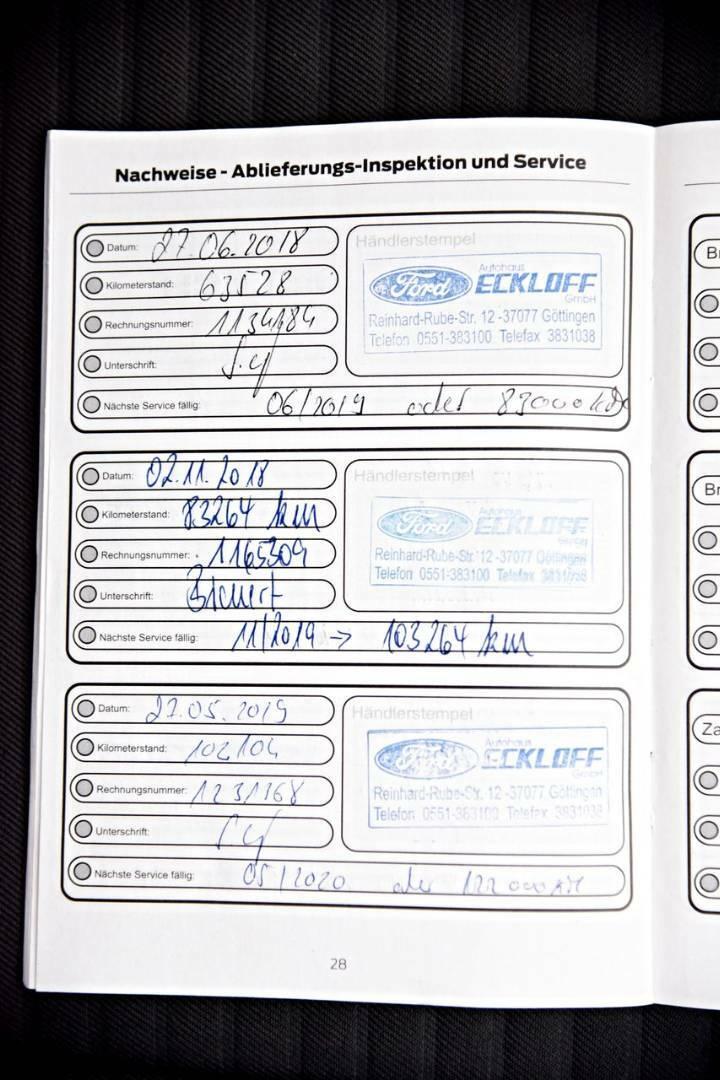 Nachweise - Ablieferungs-Inspektion und Service
Datum: 27.06.2018
Kilometerstand: 63528
Rechnungsnummer: 1134184
Unterschrift:
Nächste Service fällig: 06/2019 oder 83000 km
Händlerstempel
Ford Autohaus ECKLOFF GmbH
Reinhard-Rube-Str. 12 -37077 Göttingen
Telefon 0551-383100 Telefax 3831038
Datum: 02.11.2018
Kilometerstand: 83264 km
Rechnungsnummer: 1165309
Unterschrift:
Nächste Service fällig: 11/2019 → 103264 km
Händlerstempel
Ford Autohaus ECKLOFF GmbH
Reinhard-Rube-Str. 12 -37077 Göttingen
Telefon 0551-383100 Telefax 3831038
Datum: 27.05.2019
Kilometerstand: 102104
Rechnungsnummer: 1231168
Unterschrift:
Nächste Service fällig: 05/2020 oder 122000 KM
Händlerstempel
Ford Autohaus ECKLOFF GmbH
Reinhard-Rube-Str. 12 -37077 Göttingen
Telefon 0551-383100 Telefax 3831038
28
Br
Br
Za